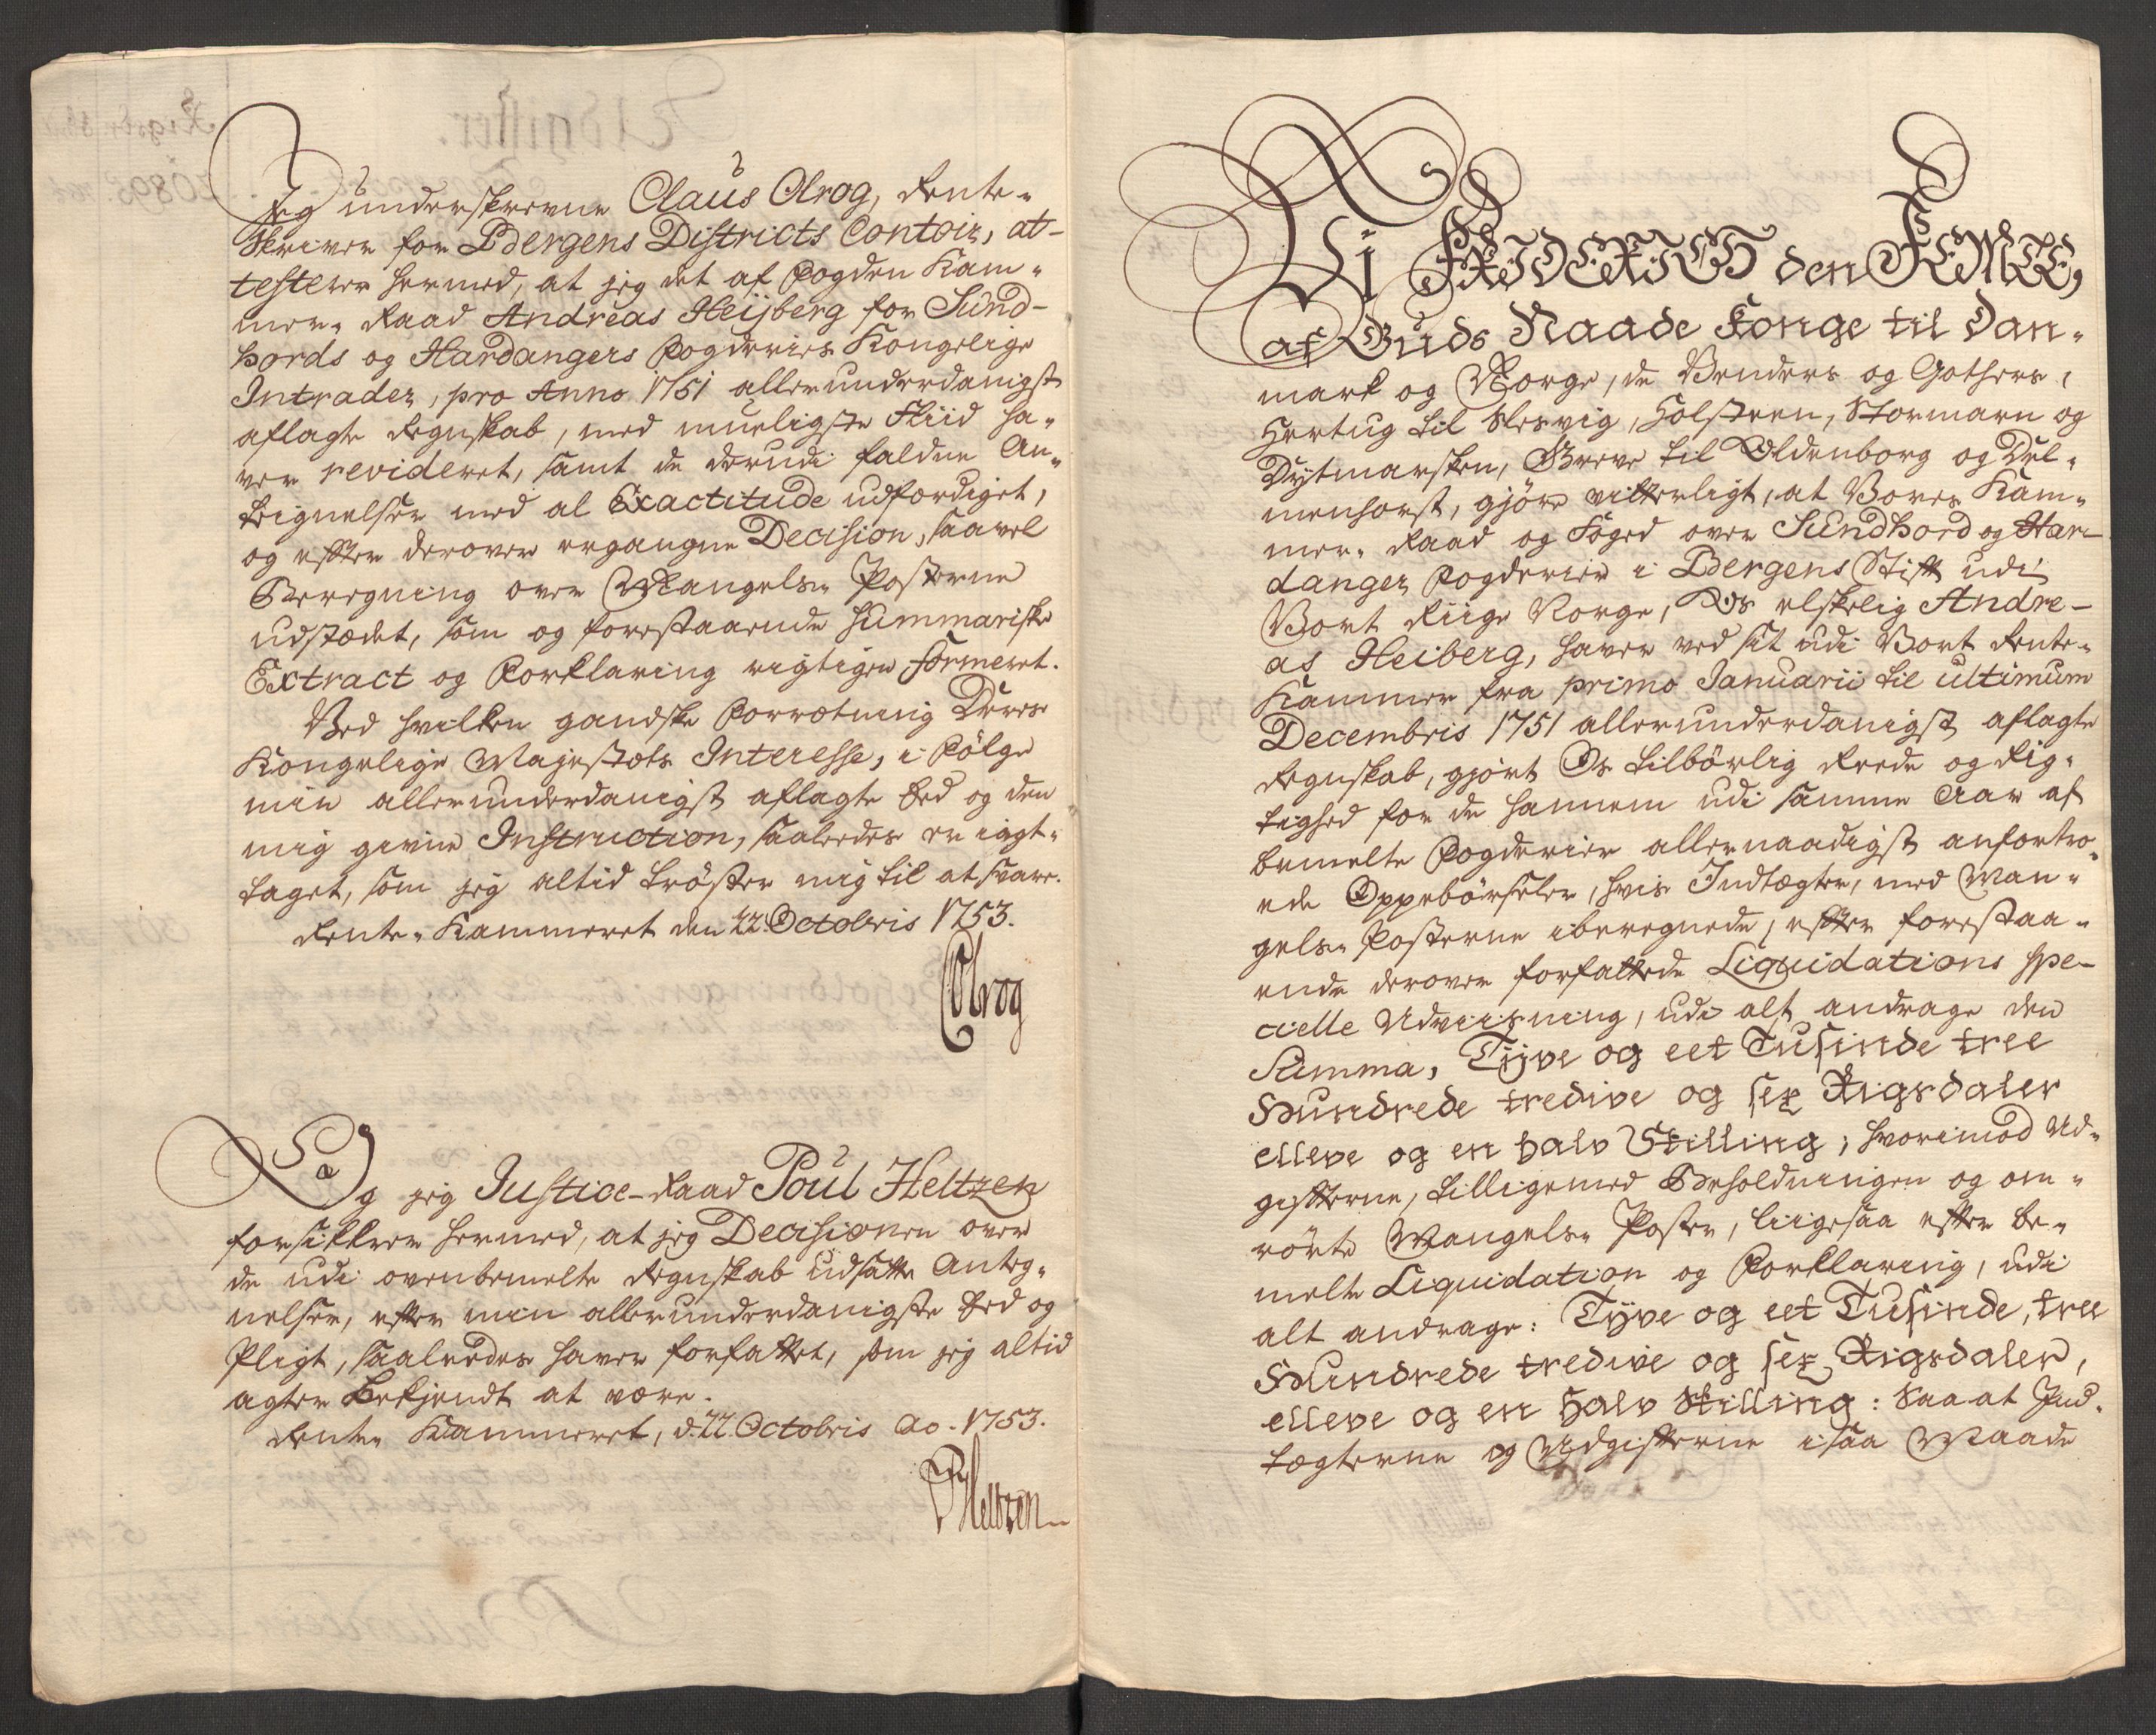 Jeg underskrevne Claus Olrog, Rente-
skriver for Bergens Districts Contoir, at-
testerer hermed, at jeg det af Fogden Kam-
mer-Raad Andreas Heijberg for Sund-
hords og Hardangers Fogderies Kongelige
Intrader, pro Anno 1751 allerunderdanigst
aflagte Regnskab, med mueligste Fliid ha-
ver revideret, samt de derudi faldne An-
tegnelser med al Exactitude udfærdiget,
og efter derover ergangne Decision, saavel
Beregning over Mangels-Posterne
udstædet, som og forestaaende summariske
Extract og Forklaring rigtigen formeret.
Ved hvilken gandske Forretning Deres
Kongelige Majestæts Interesse, i Følge
min allerunderdanigst aflagte Eed og den
mig givne Instruction, saaledes er iagt-
taget, som jeg altid trøster mig til at svare.
Rente-Kammeret den 22. Octobris 1753.
COlrog
Og jeg Justice-Raad Poul Heltzen
forsikkrer hermed, at jeg Decisionen over
de udi ovenbemelte Regnskab udsatte Anteg-
nelser, efter min allerunderdanigste Eed og
Pligt, saaledes haver forfattet, som jeg altid
agter bekjendt at være.
Rente-Kammeret, d. 22. Octobris Ao. 1753.
PHeltzen
Vi FRIDERICH den FEMTE,
af Guds Naade Konge til Dan-
mark og Norge, de Venders og Gothers,
Hertug til Slesvig, Holsteen, Stormarn og
Dytmarsken, Greve til Oldenborg og Del-
menhorst, gjøre vitterligt, at Vores Kam-
mer-Raad og Foged over Sundhord og Har-
danger Fogderier i Bergens Stift udi
Vort Riige Norge, Os elskelig Andre-
as Heiberg, haver ved sit udi Vort Rente-
Kammer fra primo Januarii til ultimum
Decembris 1751 allerunderdanigst aflagte
Regnskab, gjort Os tilbørlig Reede og Rig-
tighed for de hannem udi samme Aar af
bemelte Fogderier allernaadigst anfortro-
ede Oppebørseler, hvis Indtægter, med Man-
gels-Posterne iberegnede, efter forestaa-
ende derover forfattede Liquidations spe-
cielle Udviisning, udi alt andrage den
Summa, Tyve og eet Tusinde tree
Hundrede tredive og sex Rigsdaler
elleve og en halv Skilling; hvorimod Ud-
gifterne, tilligemed Beholdningen og om-
rørte Mangels-Poster, liigesaa efter be-
melte Liquidation og Forklaring, udi
alt andrage: Tyve og eet Tusinde, tree
Hundrede tredive og sex Rigsdaler,
elleve og en halv Skilling: Saa at Ind-
tægterne og Udgifterne i saa Maade